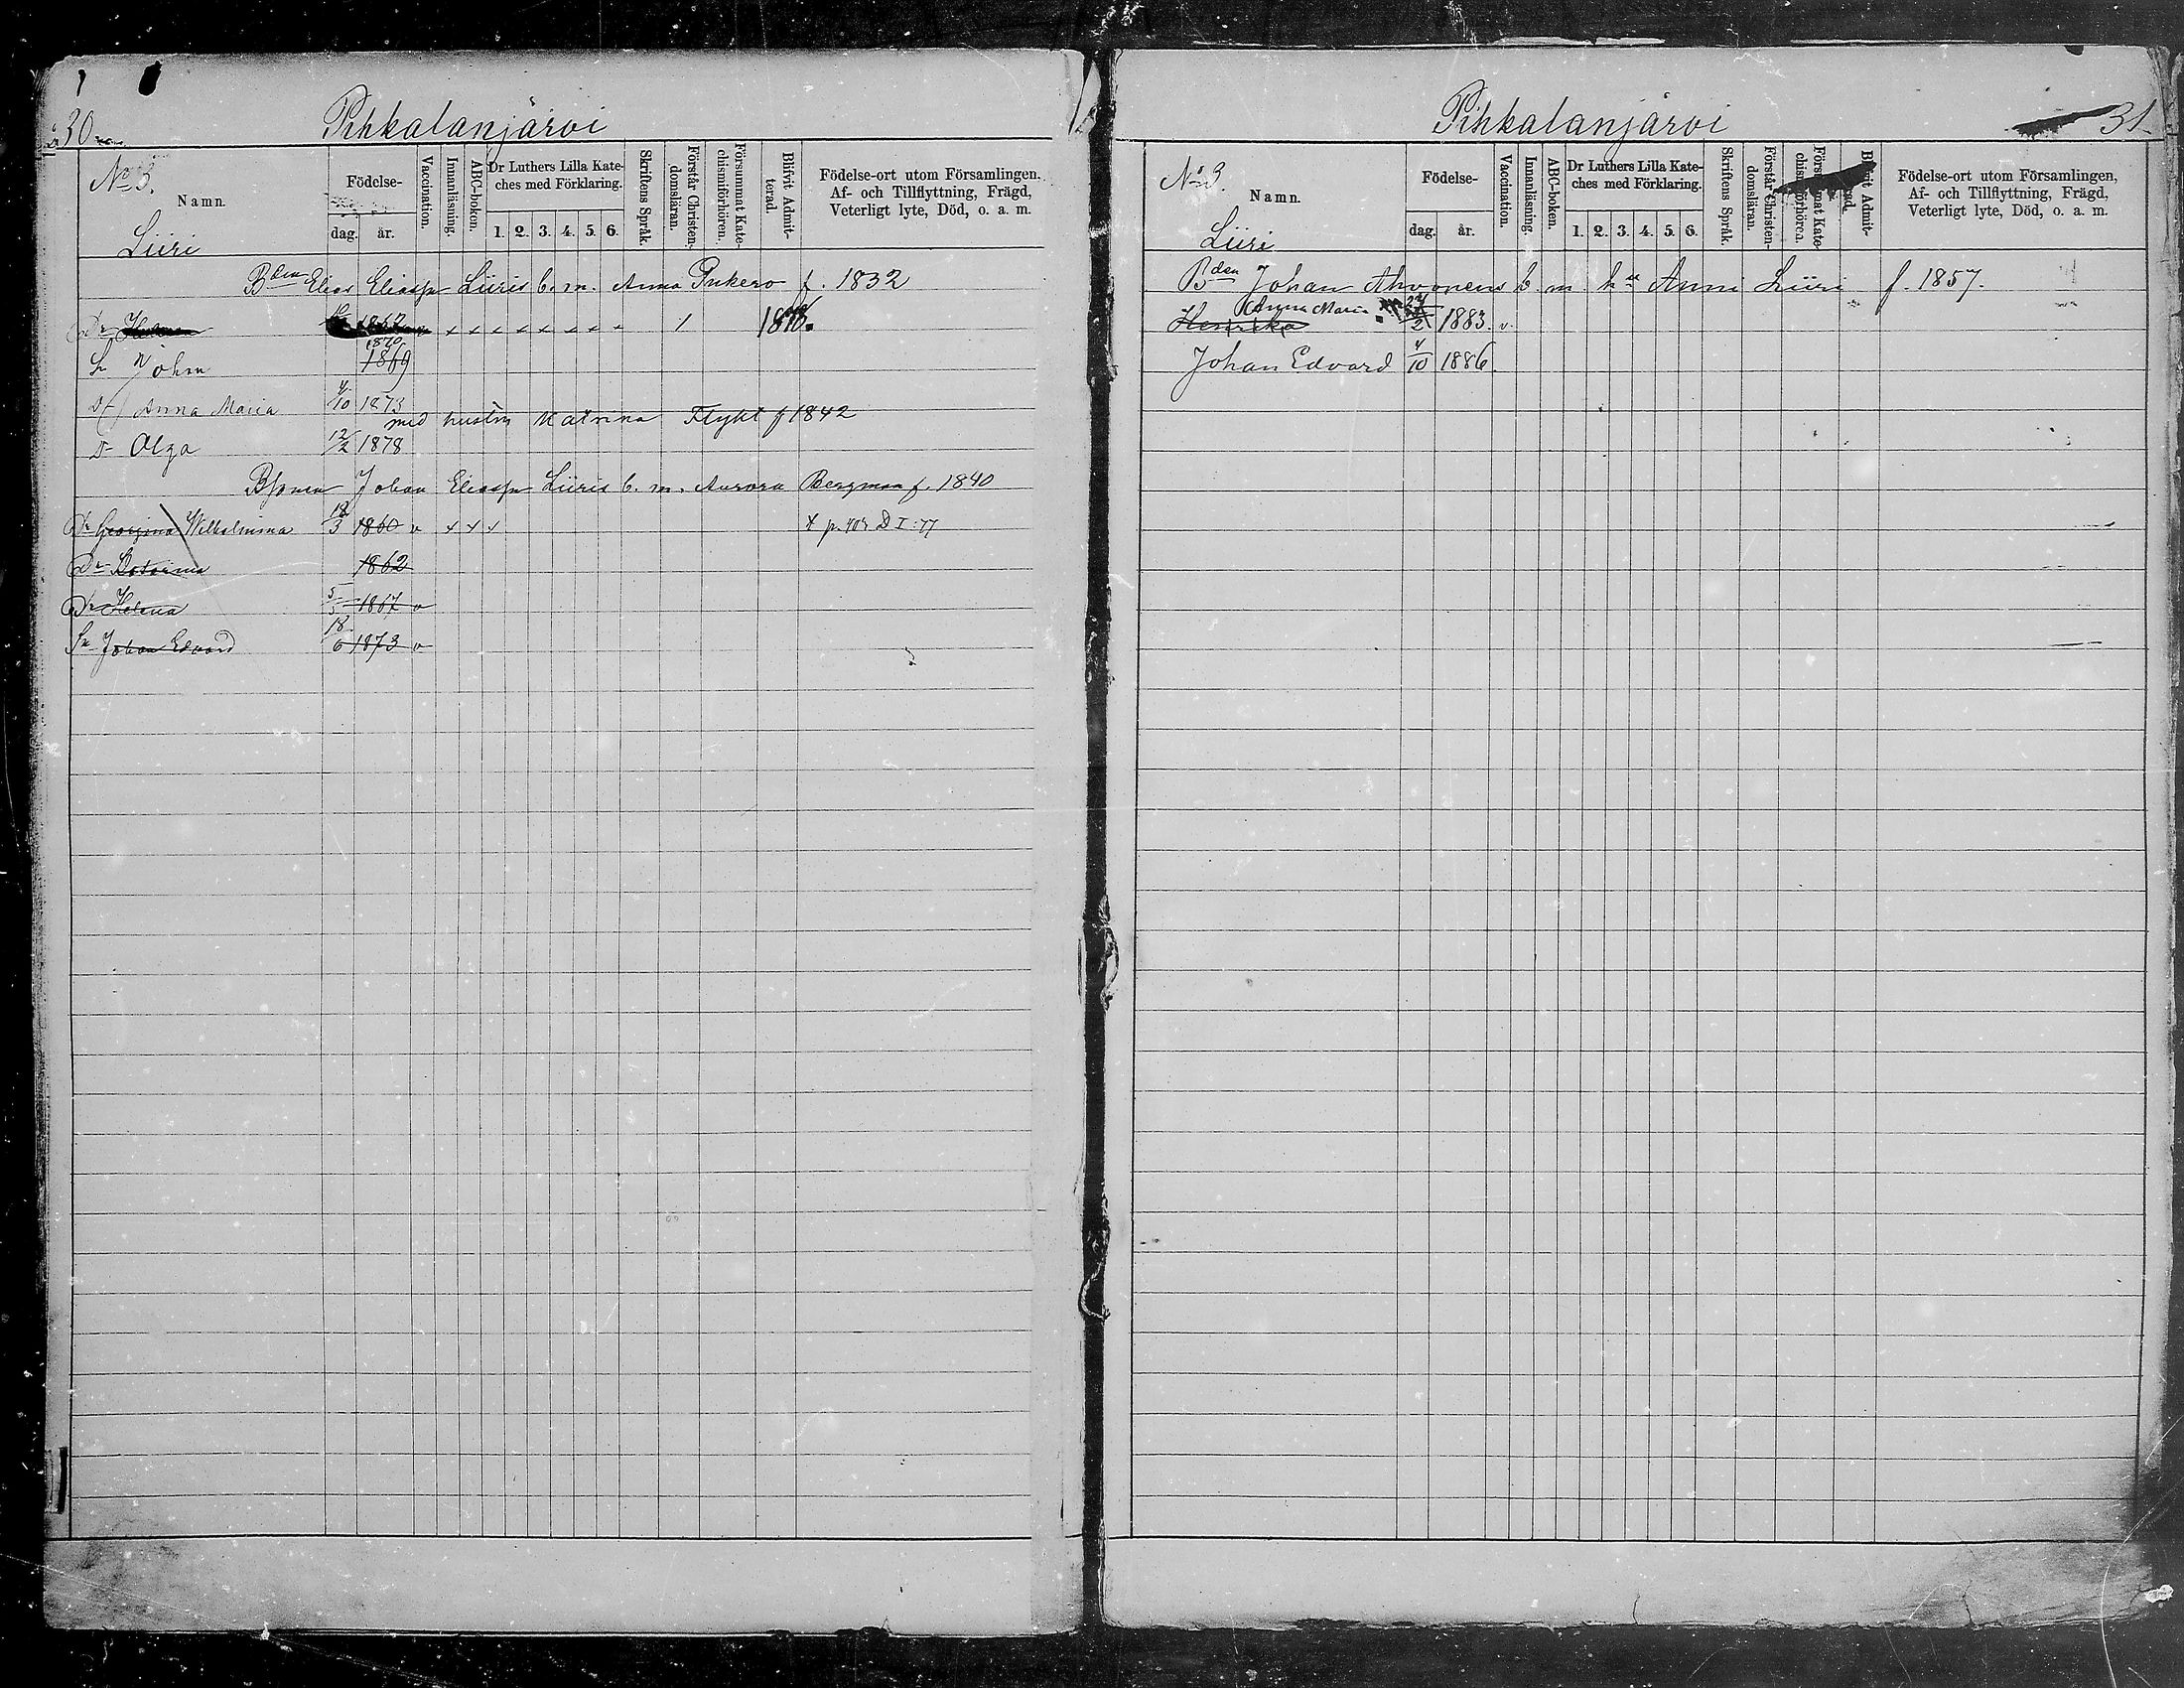 30
Pihkalanjärvi
No 3.
Namn.
Liiri
Födelse-
dag. år.
Vaccination.
Innanläsning.
ABC-boken.
Dr Luthers Lilla Kate-
ches med Förklaring.
1. 2. 3. 4. 5. 6.
Skriftens Språk.
Förstår Christen-
domsläran.
Försummat Kate-
chismiförhören.
Blifvit Admit-
terad.
Födelse-ort utom Församlingen,
Af- och Tillflyttning, Frägd,
Veterligt lyte, Död, o. a. m.
Bden Elias Eliassn Liiris b. m. Anna Pukero f. 1832
Dr
1870
Sn Johan 1869
Dr Anna Maria 4/10 1873
med hustru Katrina Flykt f 1842
Dr Olga 12/2 1878
Bsonen Johan Eliassn Liiris b. m. Aurora Bergman f. 1840
Dr Georgina Wilhelmina 18/3 1860 v x x x
Dr Katarina 1862
Dr Helena 5/5 1867 v
Sn Johan Edvard 18/6 1873 v
Pihkalanjärvi
31.
No 3.
Namn.
Liiri
Födelse-
dag. år.
Vaccination.
Innanläsning.
ABC-boken.
Dr Luthers Lilla Kate-
ches med Förklaring.
1. 2. 3. 4. 5. 6.
Skriftens Språk.
Förstår Christen-
domsläran.
Försummat Kate-
chismiförhören.
Blifvit Admit-
terad.
Födelse-ort utom Församlingen,
Af- och Tillflyttning, Frägd,
Veterligt lyte, Död, o. a. m.
Bden Johan Ahvonens b. m. hu Anni Liiri f. 1857.
Anna Maria
Henrika 1883. v.
Johan Edvard 4/10 1886.